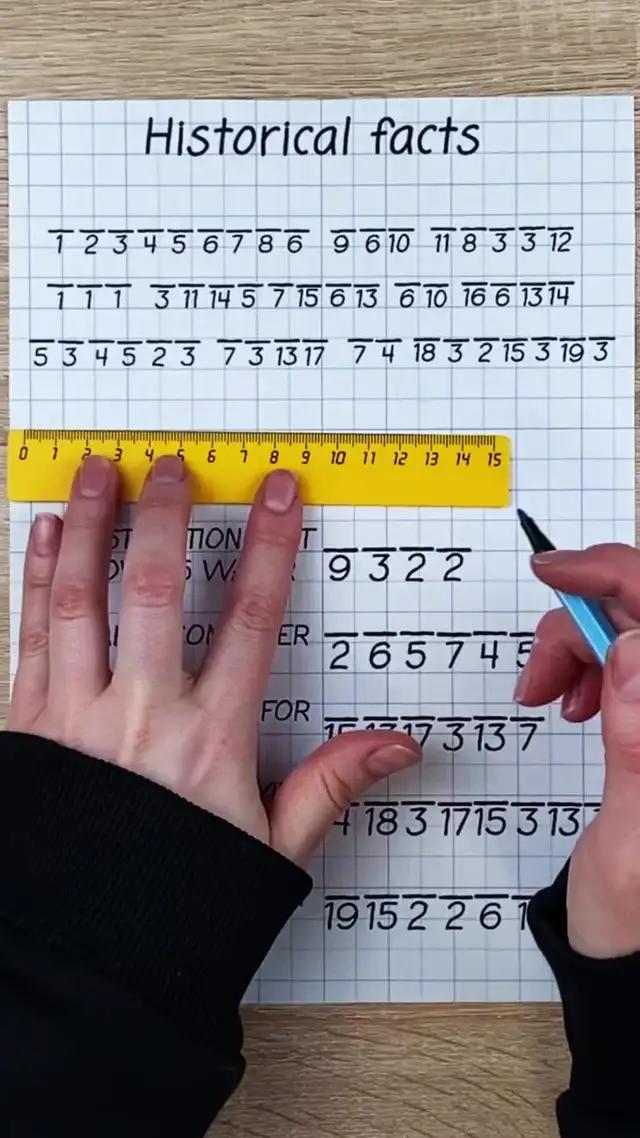 Historical facts
1 2 3 4 5 6 7 8 6 9 6 10 11 8 3 3 12
1 1 1 3 11 14 5 7 15 6 13 6 10 16 6 13 14
5 3 4 5 2 3 7 3 13 17 7 4 18 3 2 15 3 19 3
0 1 2 3 4 5 6 7 8 9 10 11 12 13 14 15
9 3 2 2
2 6 5 7 4 5
FOR
15 13 17 3 13 7
4 18 3 17 15 3 13
19 15 2 2 6